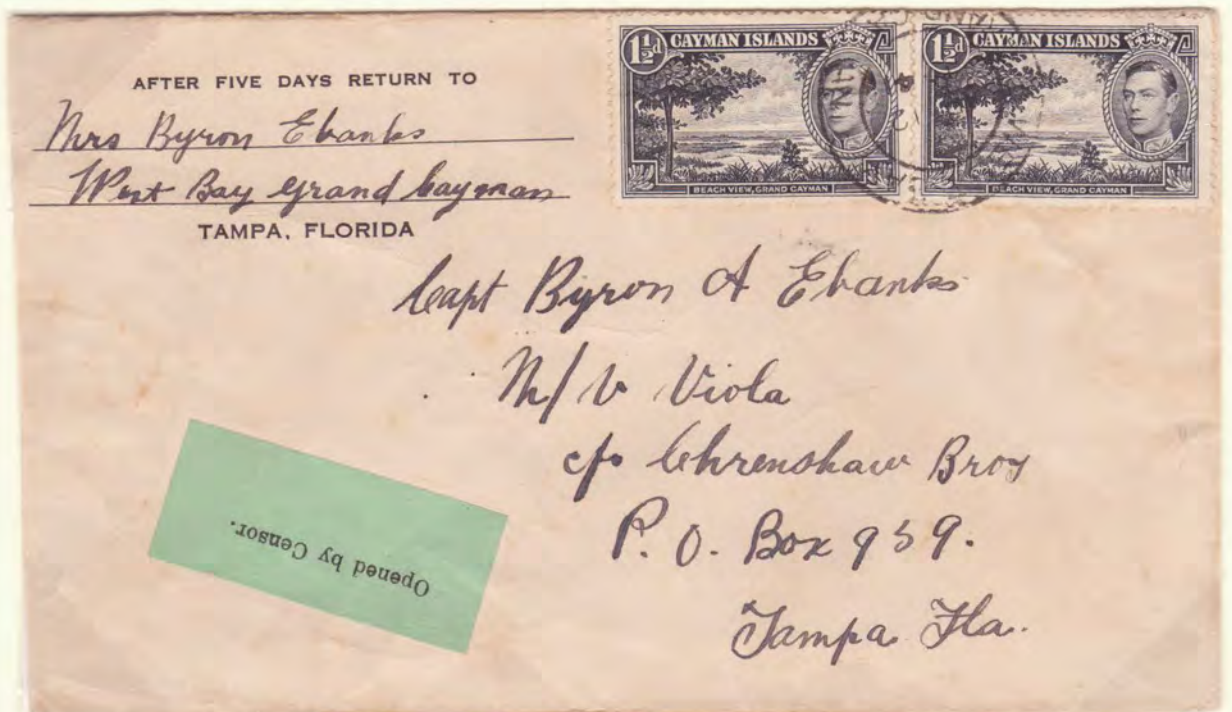 AFTER FIVE DAYS RETURN TO
Mrs Byron Ebanks
West Bay Grand Cayman
TAMPA, FLORIDA
1½d CAYMAN ISLANDS
BEACH VIEW, GRAND CAYMAN
1½d CAYMAN ISLANDS
BEACH VIEW, GRAND CAYMAN
Capt Byron A Ebanks
M/V Viola
c/o Chrenshaw Bros
P. O. Box 959.
Tampa Fla.
Opened by Censor.